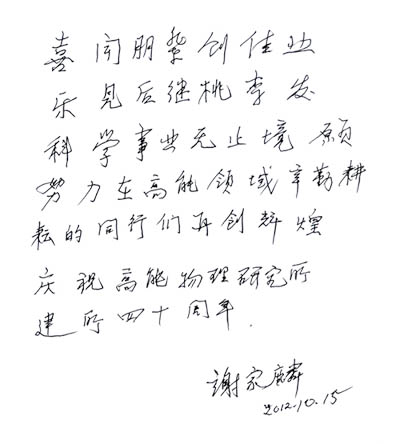 喜闻朋辈创佳业
乐见后继桃李发
科学事业无止境 愿
努力在高能领域辛勤耕
耘的同行们再创辉煌
庆祝高能物理研究所
建所四十周年.
謝家麟
2012.10.15